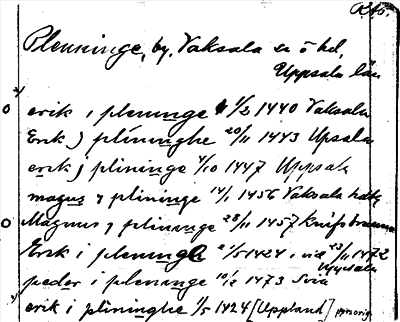 RAp.
Plenninge, by, Vaksala sn o hd,
Uppsala län
erik i pleninge 1/2 1440 Vaksala
Erik j plininghe 20/11 1443 Upsala
erik j plininge 4/10 1447 Uppsala
magnus j plininge 14/1 1456 Vaksala
Magnus j plininge 28/11 1457
Erik i pleninge 1424, 23/11 1472
Uppsala
peder i plenange 10/12 1473 Svia
erik i plininghe 1/5 1424 [Uppland]